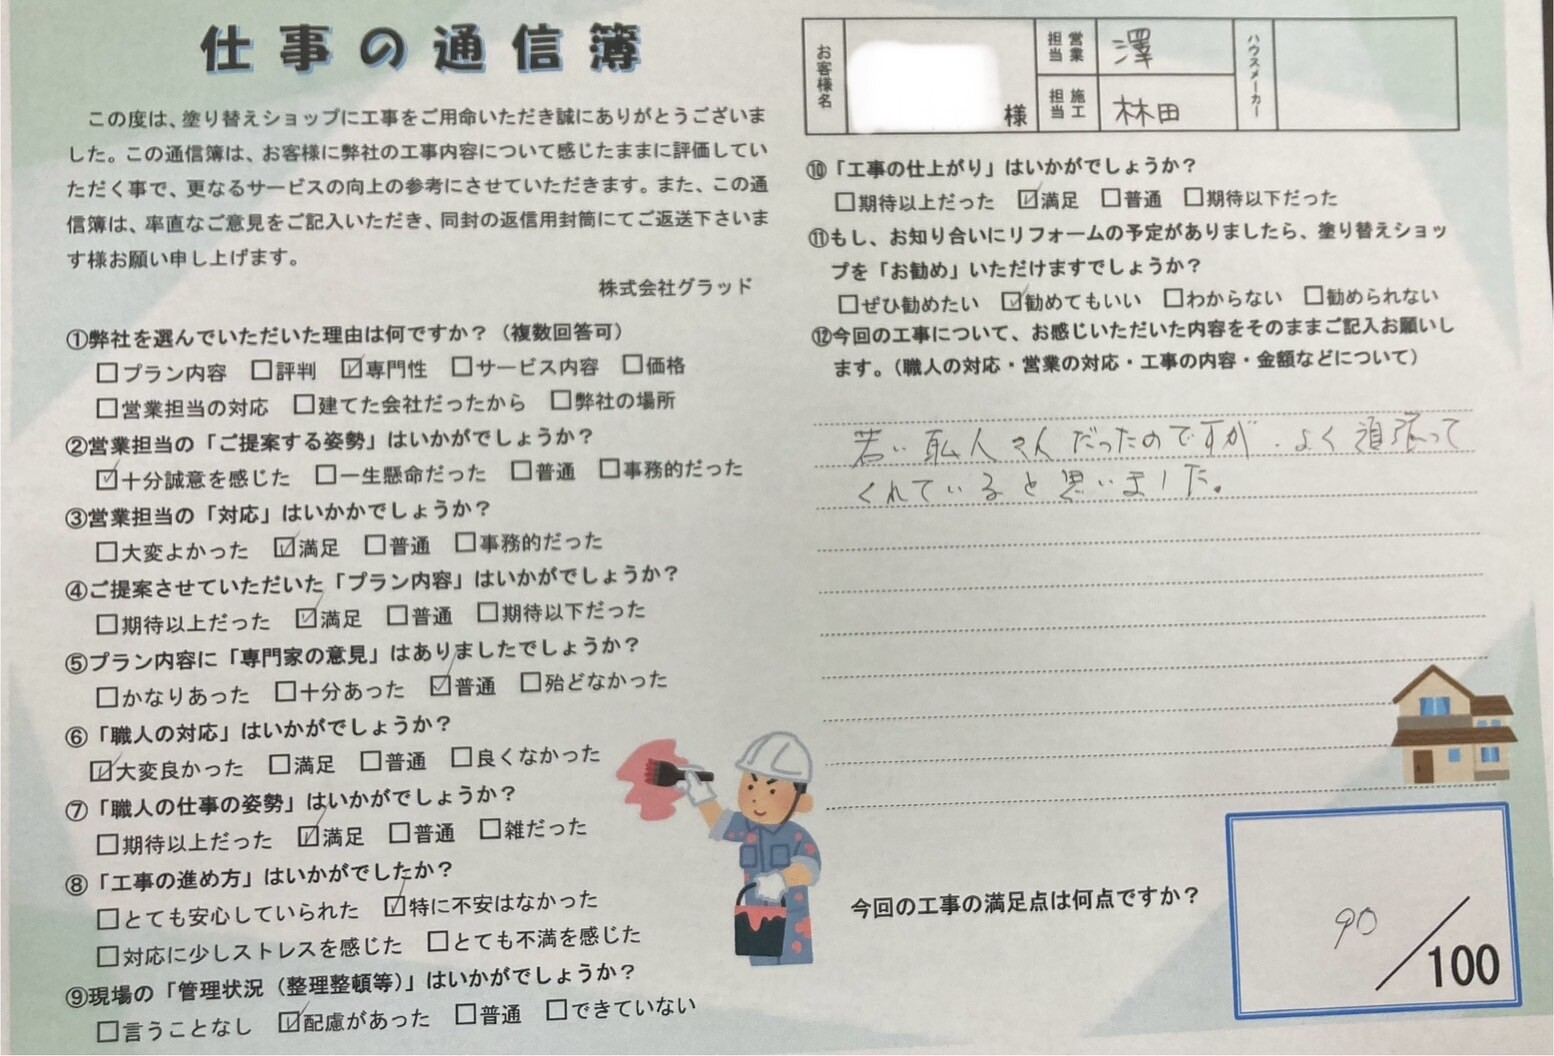 仕事の通信簿
この度は、塗り替えショップに工事をご用命いただき誠にありがとうございま
した。この通信簿は、お客様に弊社の工事内容について感じたままに評価してい
ただく事で、更なるサービスの向上の参考にさせていただきます。また、この通
信簿は、率直なご意見をご記入いただき、同封の返信用封筒にてご返送下さいま
す様お願い申し上げます。
株式会社グラッド
①弊社を選んでいただいた理由は何ですか？（複数回答可）
□プラン内容 □評判 ☑専門性 □サービス内容 □価格
□営業担当の対応 □建てた会社だったから □弊社の場所
②営業担当の「ご提案する姿勢」はいかがでしょうか？
☑十分誠意を感じた □一生懸命だった □普通 □事務的だった
③営業担当の「対応」はいかかでしょうか？
□大変よかった ☑満足 □普通 □事務的だった
④ご提案させていただいた「プラン内容」はいかがでしょうか？
□期待以上だった ☑満足 □普通 □期待以下だった
⑤プラン内容に「専門家の意見」はありましたでしょうか？
□かなりあった □十分あった ☑普通 □殆どなかった
⑥「職人の対応」はいかがでしょうか？
☑大変良かった □満足 □普通 □良くなかった
⑦「職人の仕事の姿勢」はいかがでしょうか？
□期待以上だった ☑満足 □普通 □雑だった
⑧「工事の進め方」はいかがでしたか？
□とても安心していられた ☑特に不安はなかった
□対応に少しストレスを感じた □とても不満を感じた
⑨現場の「管理状況（整理整頓等）」はいかがでしょうか？
□言うことなし ☑配慮があった □普通 □できていない
お客様名 様
営業担当 澤
施工担当 林田
ハウスメーカー
⑩「工事の仕上がり」はいかがでしょうか？
□期待以上だった ☑満足 □普通 □期待以下だった
⑪もし、お知り合いにリフォームの予定がありましたら、塗り替えショッ
プを「お勧め」いただけますでしょうか？
□ぜひ勧めたい ☑勧めてもいい □わからない □勧められない
⑫今回の工事について、お感じいただいた内容をそのままご記入お願いし
ます。（職人の対応・営業の対応・工事の内容・金額などについて）
若い職人さんだったのですが、よく頑張って
くれていると思いました。
今回の工事の満足点は何点ですか？
90/100